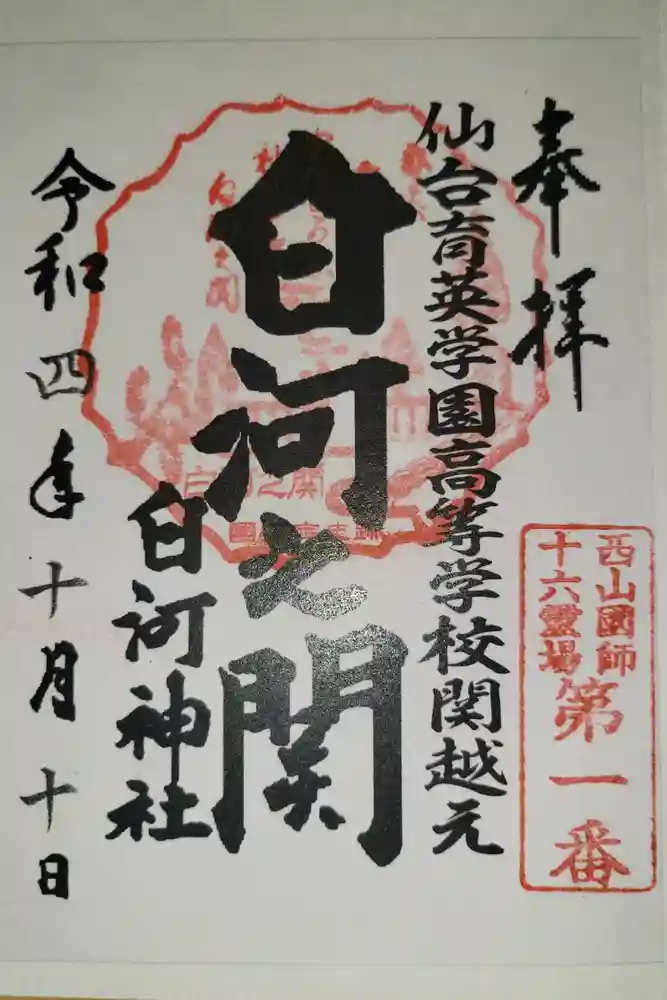 奉拝
西山國師
十六霊場
第一番
仙台育英学園高等学校関越元
白河之関
白河神社
令和四年十月十日